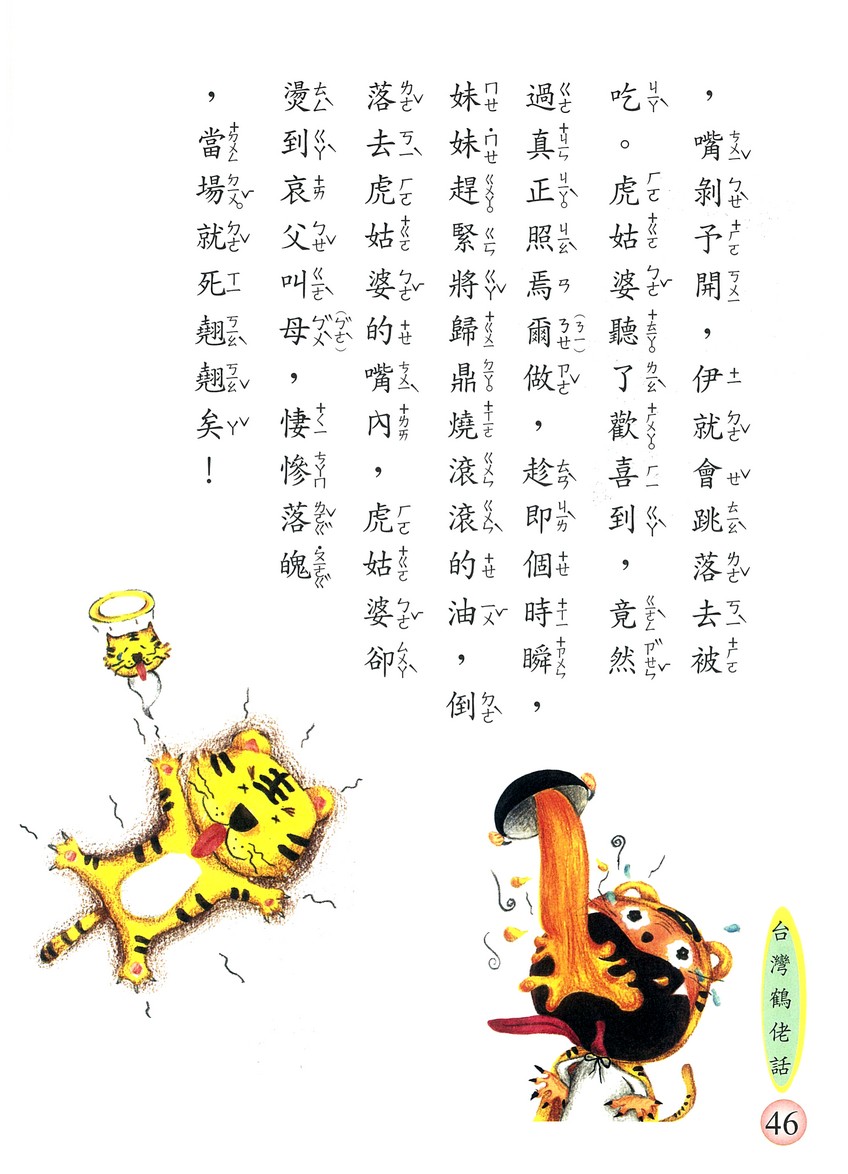 ，嘴剝予開，伊就會跳落去被
吃。虎姑婆聽了歡喜到，竟然
過真正照焉爾做，趁即個時瞬，
妹妹趕緊將歸鼎燒滾滾的油，倒
落去虎姑婆的嘴內，虎姑婆卻
燙到哀父叫母，悽慘落魄
，當場就死翹翹矣！
台灣鶴佬話
46